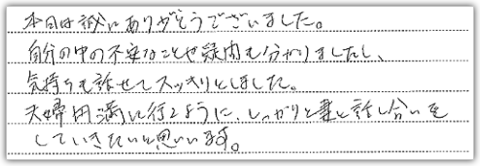 本日は誠にありがとうございました。
自分の中の不安なことや疑問も分かりましたし、
気持ちも話せてスッキリとしました。
夫婦円満に行くように、しっかりと妻と話し合いを
していきたいと思いいます。